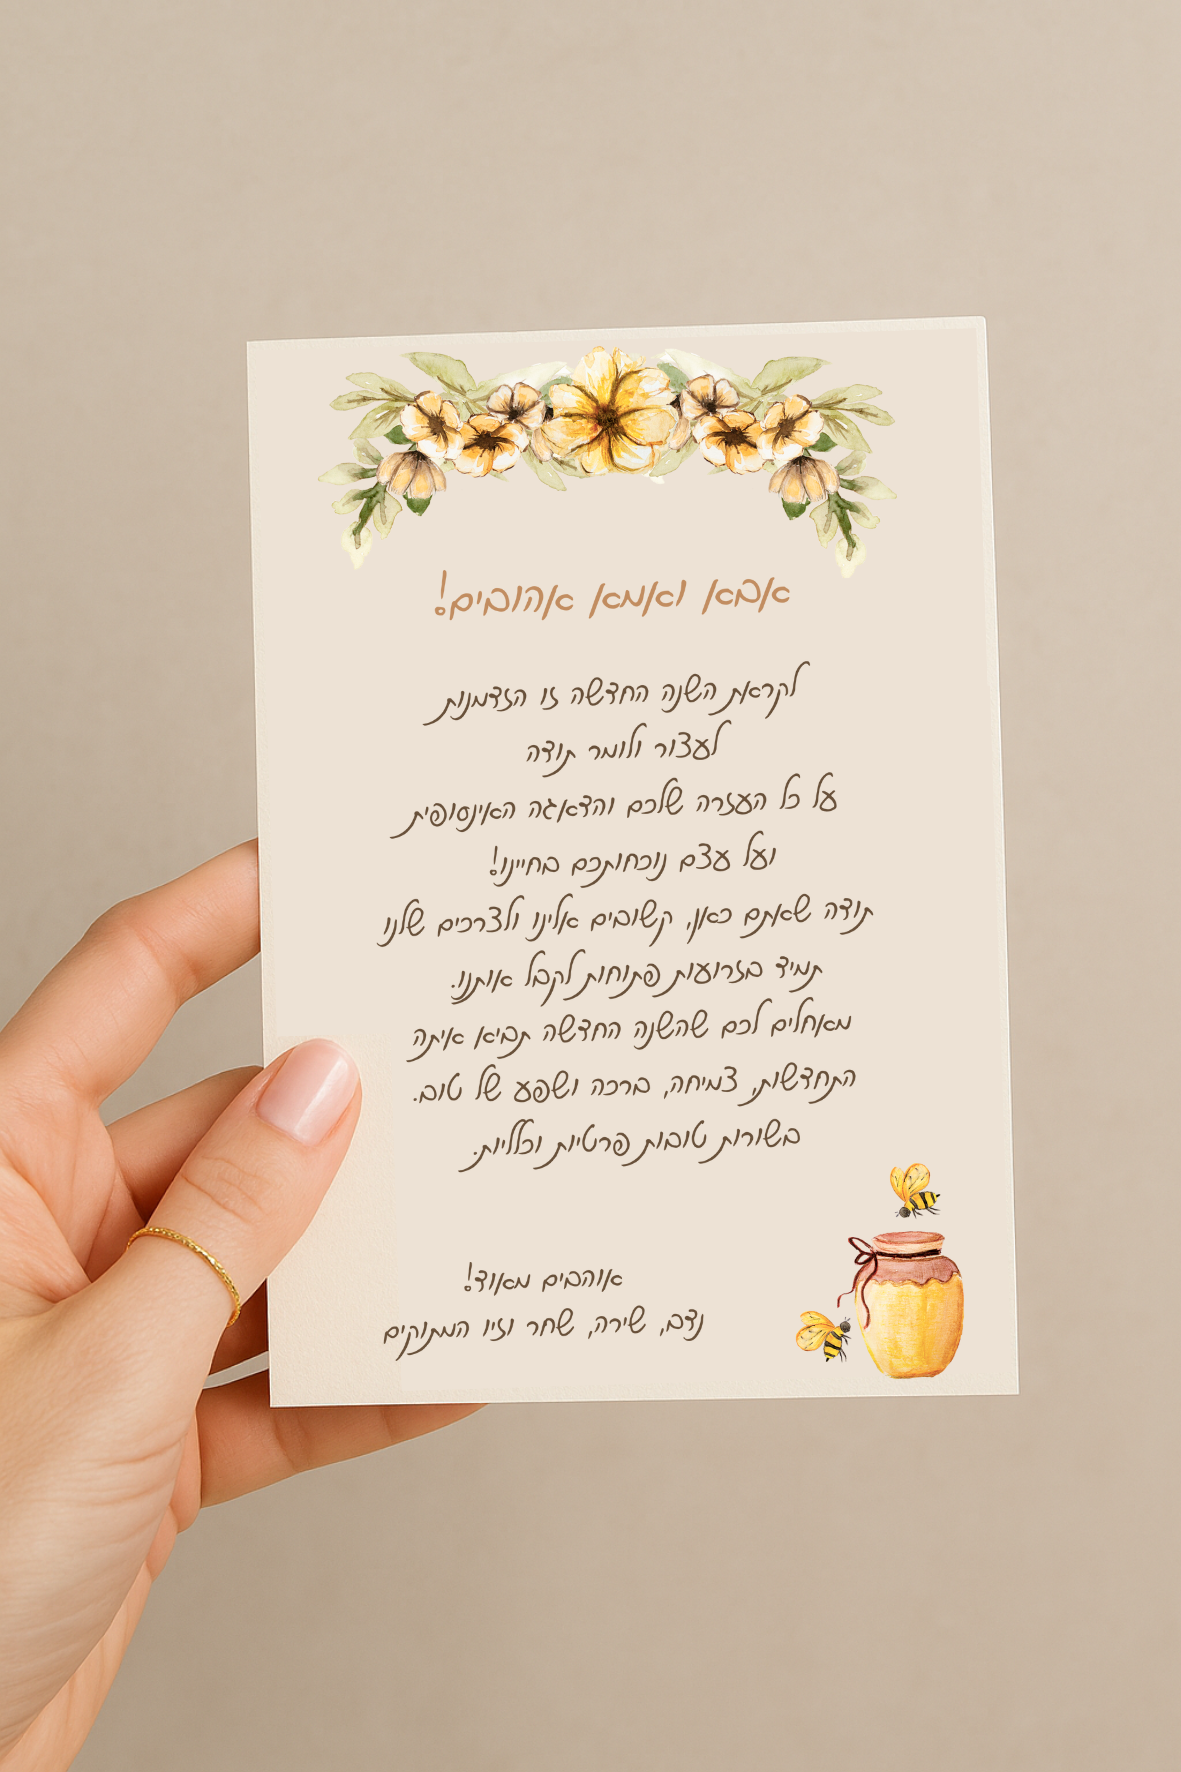 אבא ואמא אהובים!
לקראת השנה החדשה זו הזדמנות
לעצור ולומר תודה
על כל העזרה שלכם והדאגה האינסופית
ועל עצם נוכחותכם בחיינו!
תודה שאתם כאן, קשובים אלינו ולצרכים שלנו
תמיד בזרועות פתוחות לקבל אותנו.
מאחלים לכם שהשנה החדשה תביא איתה
התחדשות, צמיחה, ברכה ושפע של טוב.
בשורות טובות פרטיות וכלליות.
אוהבים מאוד!
נדב, שירה, שחר וזיו המתוקים